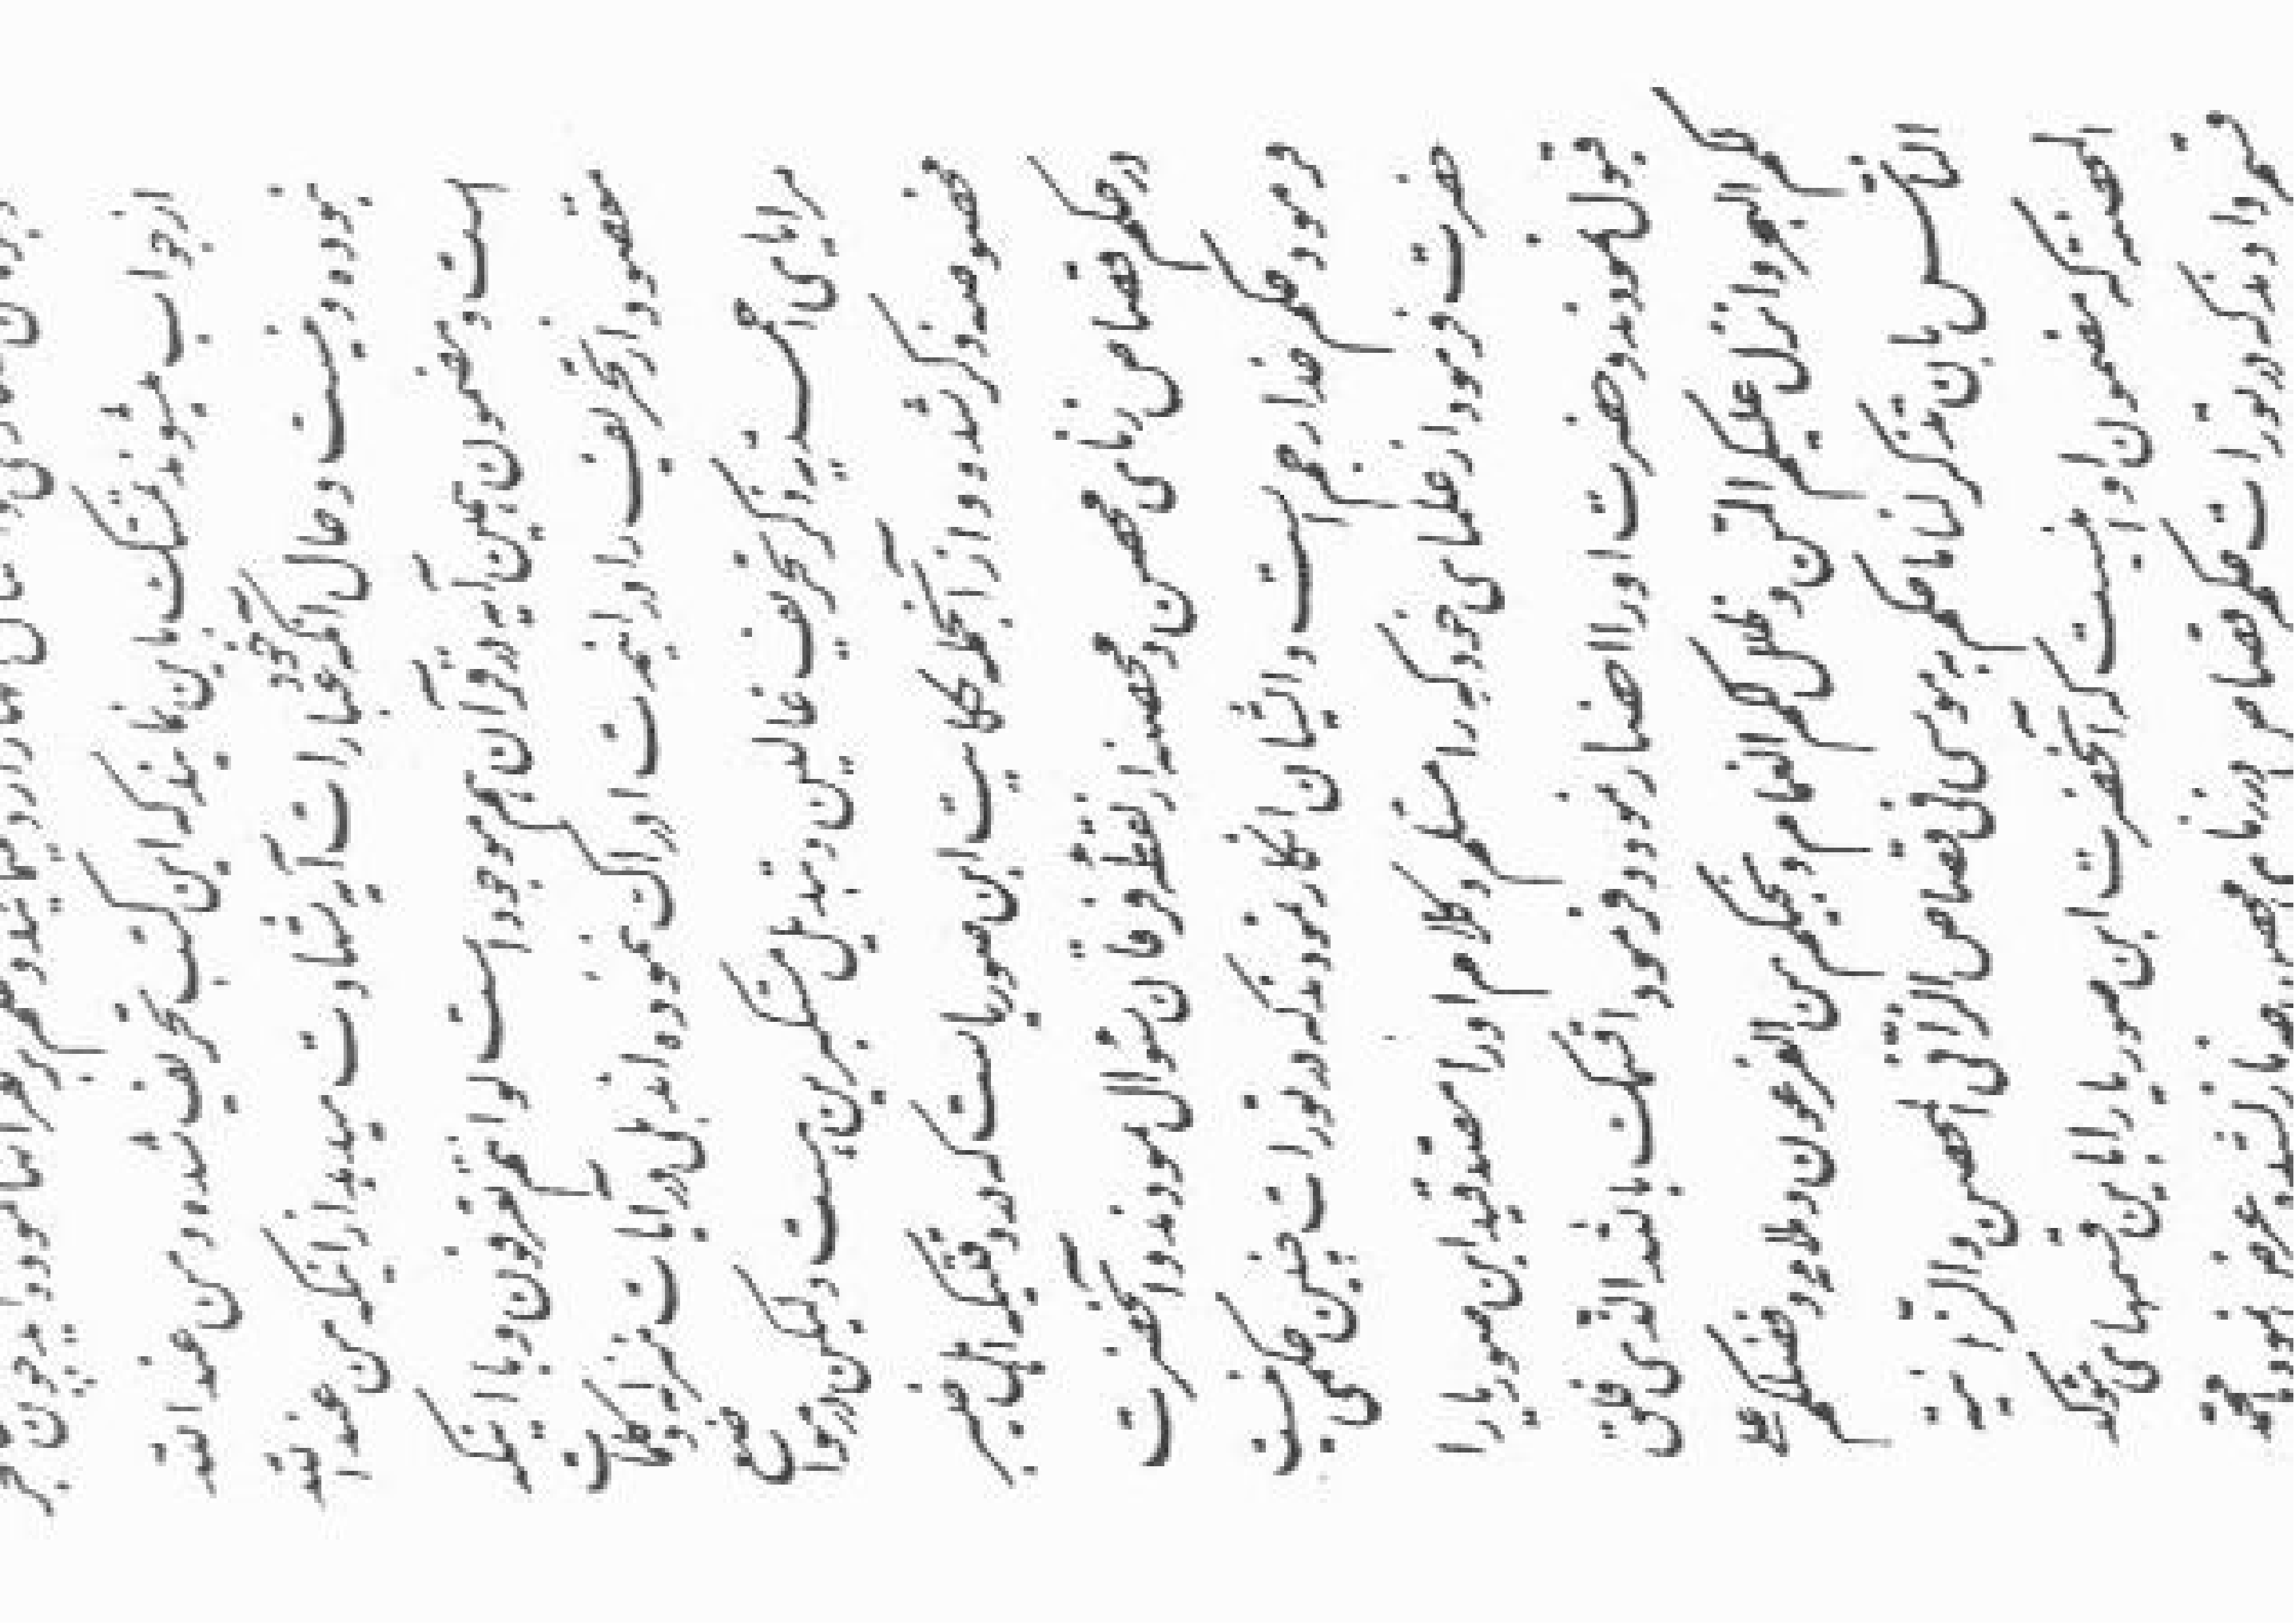 از جواب میشوند متمسک باین نمایند که این کتب تحریف شده و من عند الله
نبوده و نیست و حال آنکه خود عبارات آیه شهادت میدهد از اینکه من عند الله
است و مضمون همین آیه در قرآن هم موجود است لو انتم تعرفون و با اینکه
مقصود از تحریف را در این مدت ادراک ننموده اند بلی در آیات منزله و کلمات
مرایای احمدیه ذکر تحریف عالین و تبدیل مستکبرین هست ولیکن در مواضع
مخصوصه ذکر شده و از آنجمله حکایت ابن صوریا است که در وقتیکه اهل خیبر
در حکم قصاص زنای محصن و محصنه از نقطه فرقان سؤال نمودند و آنحضرت
فرمود حکم خدا رجم است و ایشان انکار نمودند که در تورات چنین حکمی نیست
حضرت فرمود از علمای خود که را مسلم و کلام او را مصدقید ابن صوریا را
قبول نمودند و حضرت او را احضار نمود و فرمود اقسمک بالله الذی فلق
لکم البحر و انزل علیکم المن و ظلل لکم الغمام و نجیکم من الفرعون و ملائه و فضلکم علی
الناس بان تذکر لنا ما حکم به موسی فی قصاص الزانی المحصن و الزانیة
المحصنة که مضمون او اینست که آنحضرت ابن صوریا را باین قسمهای مؤکد
قسم دادند که در تورات حکم قصاص در زنای محصن چه نازل شده عرض نمود یا محمد